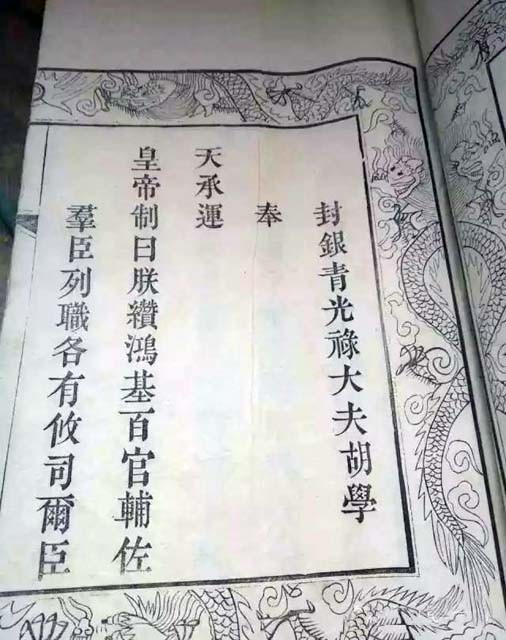 封銀青光祿大夫胡學
奉
天承運
皇帝制曰朕纘鴻基百官輔佐
羣臣列職各有攸司爾臣